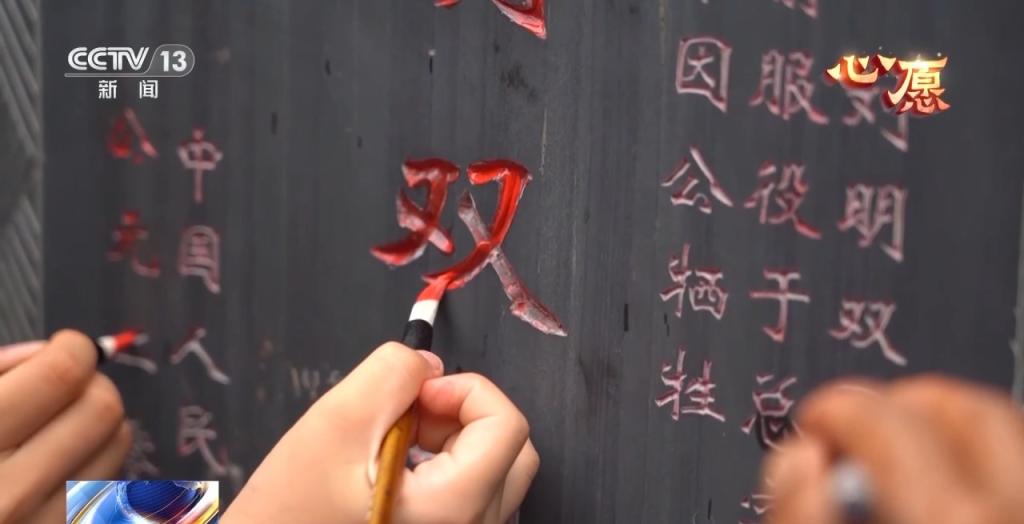 CCTV 13
新闻
心愿
明双
服役于总
因公牺牲
双
中国人民
公元